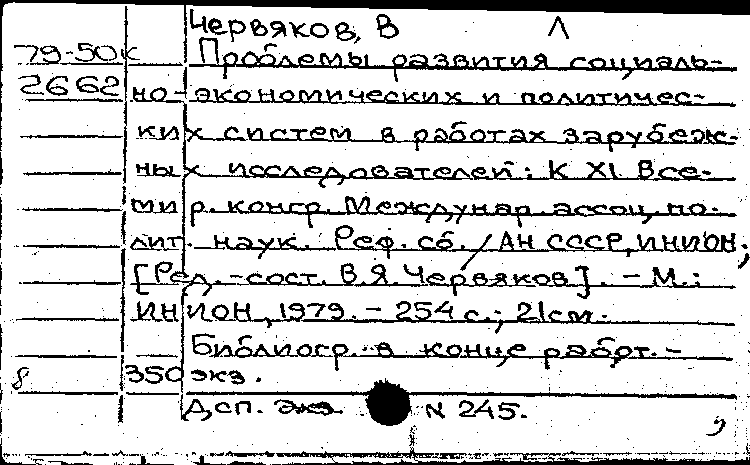 Червяков, В Л
79-50к Проблемы развития социаль-
2662 но-экономических и политичес-
ких систем в работах зарубеж-
ных исследователей: К XI Все-
мир. конгр. Междунар. ассоц. по-
лит. наук. Реф. сб. / АН СССР, ИНИОН;
[Ред.-сост. В.Я. Червяков]. - М.:
ИНИОН, 1979. - 254 с.; 21 см.
Библиогр. в конце работ. -
8 350 экз.
Дсп. Экз. N 245.